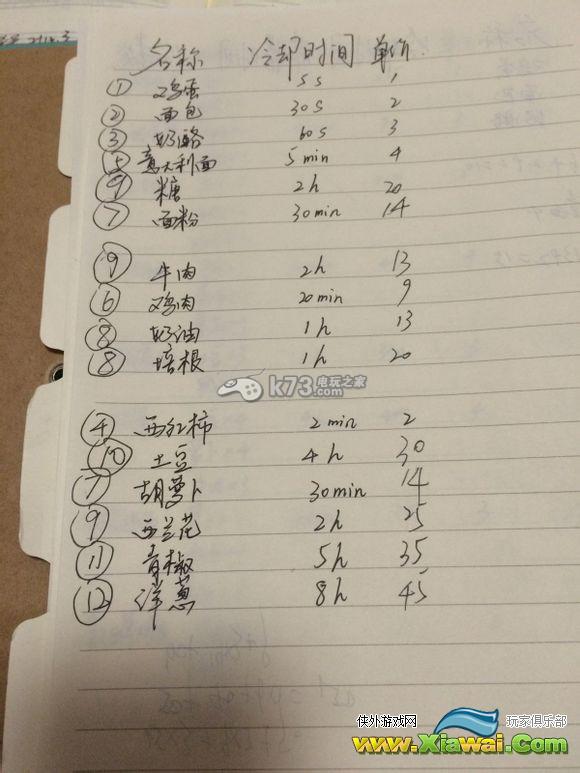 名称 冷却时间 单价
① 鸡蛋 5s 1
② 面包 30s 2
③ 奶酪 60s 3
⑤ 意大利面 5min 4
⑨ 糖 2h 20
⑦ 面粉 30min 14
⑨ 牛肉 2h 13
⑥ 鸡肉 20min 9
⑧ 奶油 1h 13
⑧ 培根 1h 20
k73 电玩之家
.com
④ 西红柿 2min 2
⑩ 土豆 4h 30
⑦ 胡萝卜 30min 14
⑨ 西兰花 2h 25
⑪ 青椒 5h 35
⑫ 洋葱 8h 45
侠外游戏网 玩家俱乐部
www.Xiawai.Com